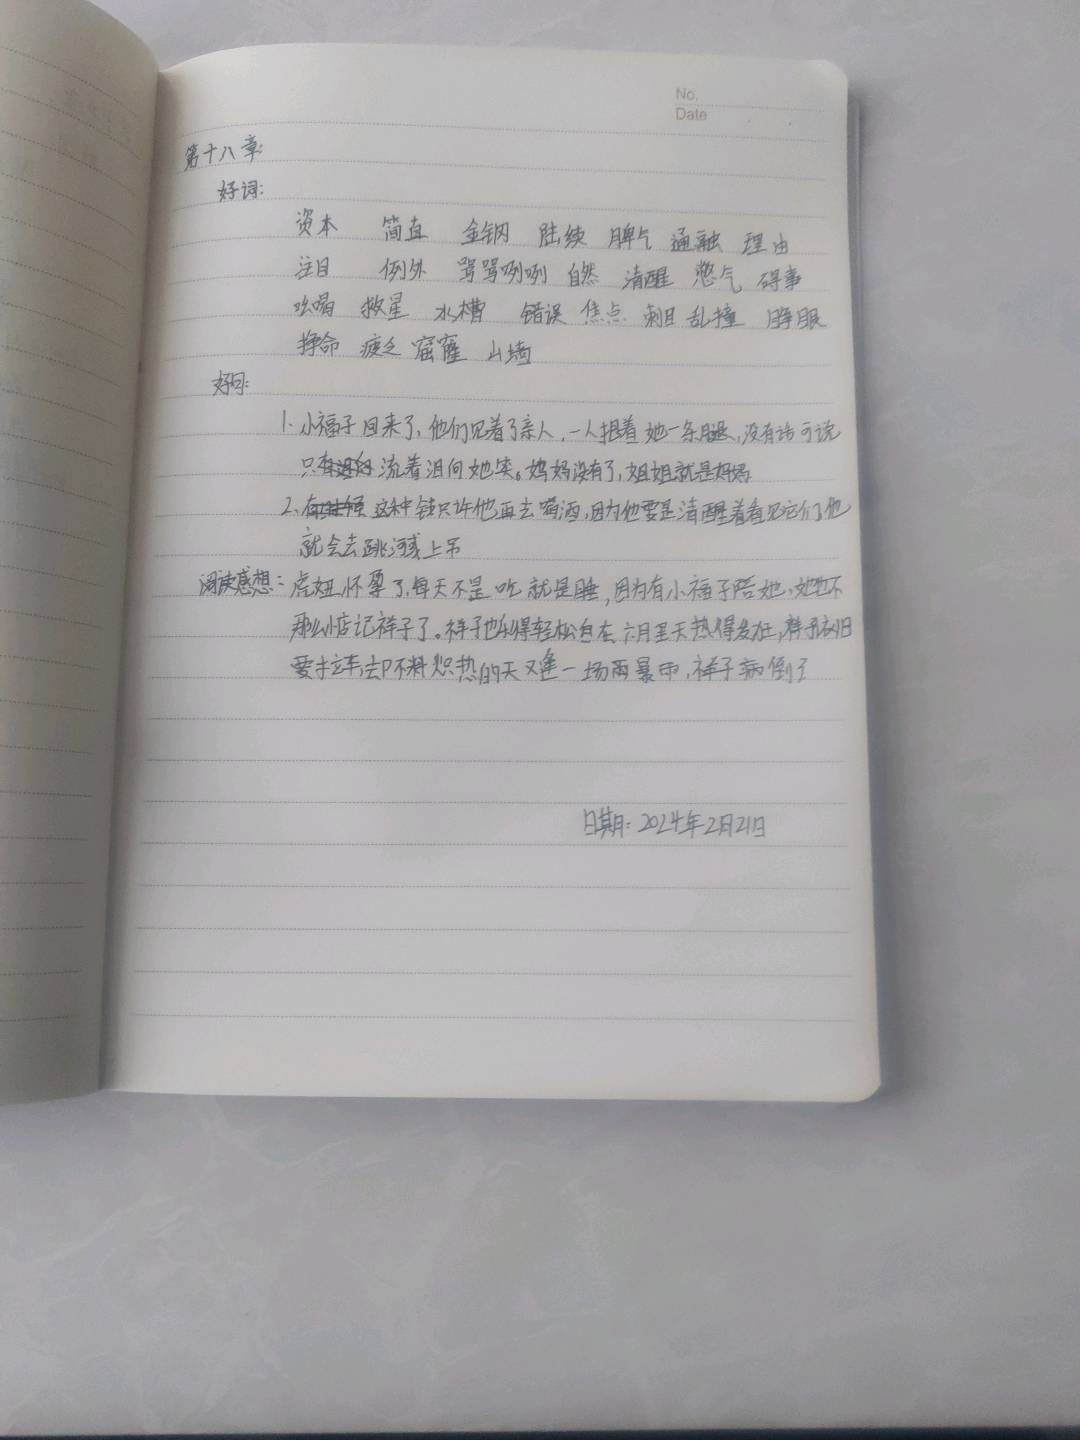 No.
Date
第十八章:
好词:
资本 简直 金钢 陆续 脾气 通融 理由
注目 例外 骂骂咧咧 自然 清醒 憋气 碍事
吆喝 救星 水槽 错误 焦点 刺目 乱撞 睁眼
挣命 疲乏 窟窿 山墙
好句:
1. 小福子回来了,他们见着了亲人,一人抱着她一条腿,没有话可说
只 流着泪向她笑。妈妈没有了,姐姐就是妈妈
2. 这种钱只许他再去喝酒,因为他要是清醒着看见它们,他
就会去跳河或上吊
阅读感想: 虎妞怀孕了,每天不是吃就是睡,因为有小福子陪她,她也不
那么惦记祥子了。祥子也乐得轻松自在 六月里天热得发狂,祥子依旧
要拉车,却不料炽热的天又逢一场雨暴雨,祥子病倒了
日期: 2024年2月21日